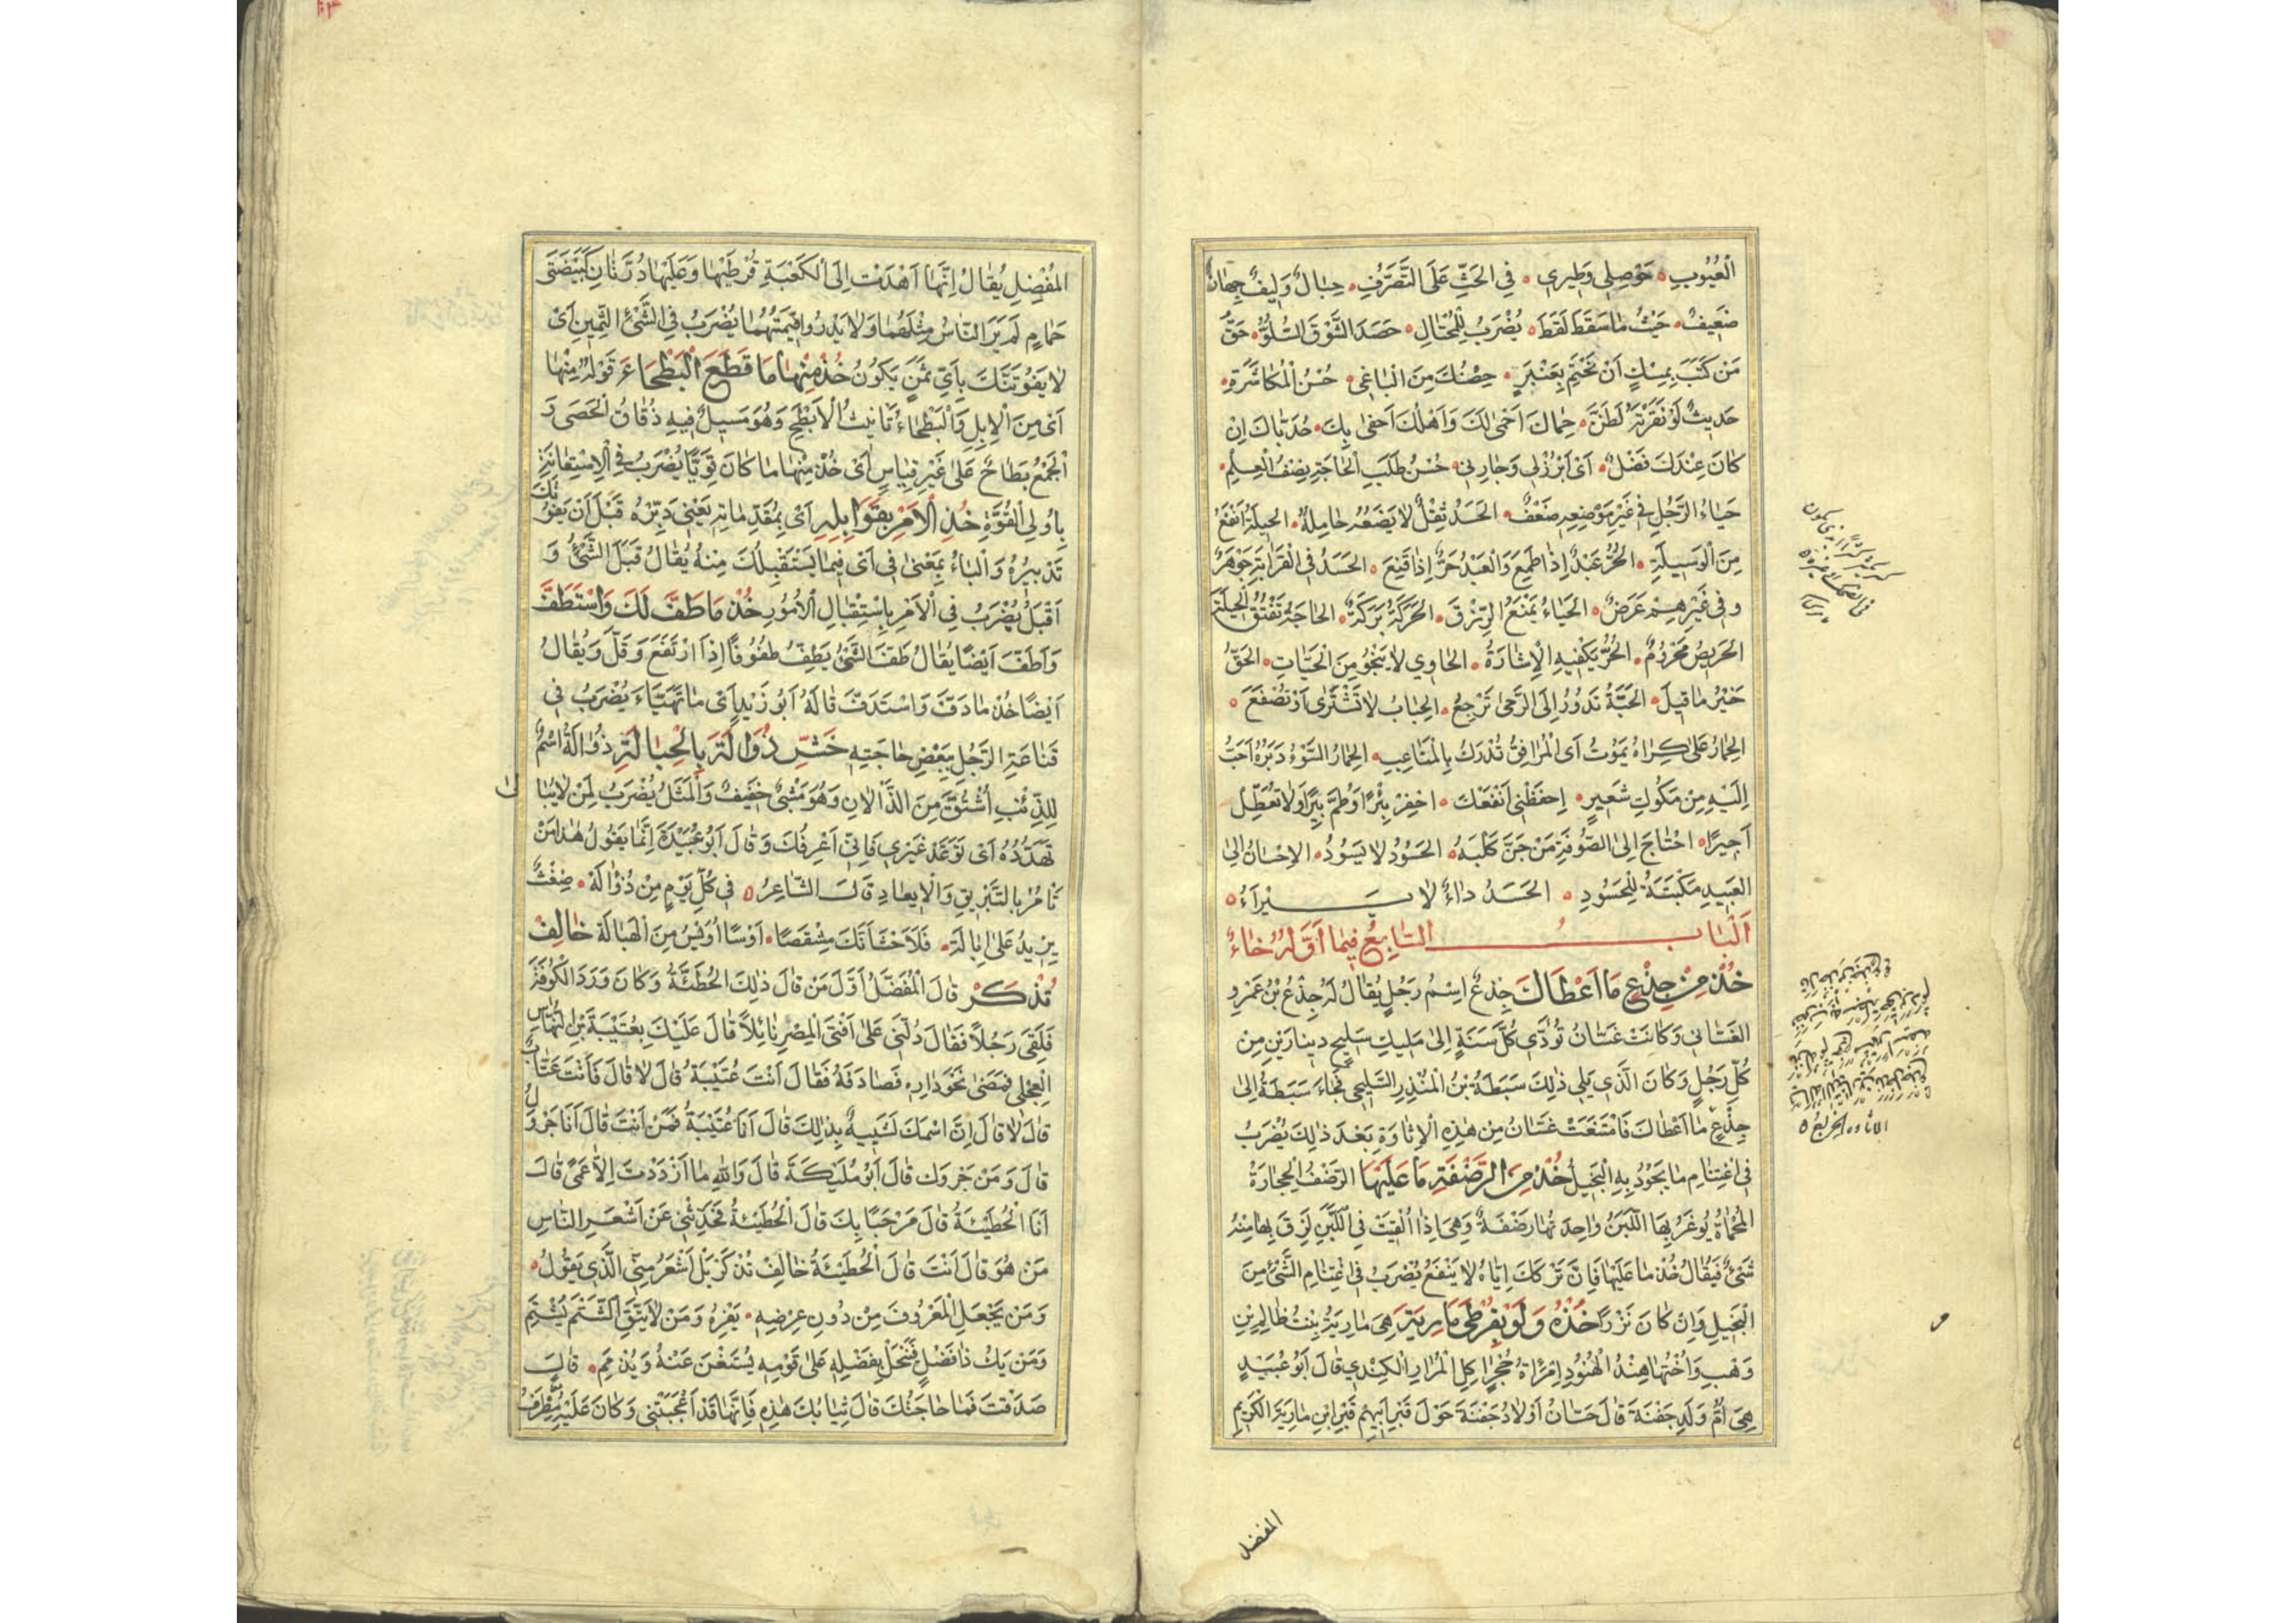 الْعُيُوبِ حَوْصِلِي وَطِيرِي فِي الحَثِّ عَلَى التَّصَرُّفِ حِبَالٌ وَلِيفٌ جِهَازٌ
ضَعِيفٌ حَيْثُ مَا سَقَطَ لَقَطَ يُضْرَبُ لِلْمُحْتَالِ حَصَدَ الشَّوْقَ السُّلُوُّ حَقُّ
مَنْ كَتَبَ بِمِسْكٍ أَنْ يَخْتِمَ بِعَنْبَرٍ حِصْنُكَ مِنَ الْبَاغِي حُسْنُ الْمُكَاشَرَةِ
حَدِيثٌ لَوْ نَقَرْتَهُ لَطَنَّ حِمَاكَ أَحْمَى لَكَ وَأَهْلُكَ أَحْفَى بِكَ حُدَيَّاكَ إِنْ
كَانَ عِنْدَكَ فَضْلٌ أَيْ ابْرُزْ لِي وَجَارِنِي حُسْنُ طَلَبِ الْحَاجَةِ نِصْفُ الْعِلْمِ
حَيَاءُ الرَّجُلِ فِي غَيْرِ مَوْضِعِهِ ضَعْفٌ الْحَسَدُ ثِقْلٌ لَا يَضَعُهُ حَامِلُهُ الْحِيلَةُ أَنْفَعُ
مِنَ الْوَسِيلَةِ الْحُرُّ عَبْدٌ إِذَا طَمِعَ وَالْعَبْدُ حُرٌّ إِذَا قَنِعَ الْحَسَدُ فِي الْقَرَابَةِ جَوْهَرٌ
وَفِي غَيْرِهِمْ عَرَضٌ الْحَيَاءُ يَمْنَعُ الرِّزْقَ الْحَرَكَةُ بَرَكَةٌ الْحَاجَةُ تَفْتُقُ الْحِيلَةَ
الْحَرِيصُ مَحْرُومٌ الْحُرُّ يَكْفِيهِ الْإِشَارَةُ الْحَاوِي لَا يَنْجُو مِنَ الْحَيَّاتِ الْحَقُّ
خَيْرُ مَا قِيلَ الْحَبَّةُ تَدُورُ إِلَى الرَّحَى تَرْجِعُ الْحِبَابُ لَا تُشْتَرَى أَوْ تُصْفَعَ
الْحِمَارُ عَلَى كِرَاهُ يَمُوتُ أَيْ الْمَرَافِقُ تُدْرَكُ بِالْمَتَاعِبِ الْحِمَارُ السَّوْءُ دَبَرُهُ أَحَبُّ
إِلَيْهِ مِنْ مَكُّوكِ شَعِيرٍ احْفَظْنِي أَنْفَعْكَ احْفِرْ بِئْرًا وَطُمَّ بِئْرًا وَلَا تُعَطِّلْ
أَجِيرًا احْتَاجَ إِلَى الصُّوفَةِ مَنْ جَزَّ كَلْبَهُ الْحَسُودُ لَا يَسُودُ الْإِحْسَانُ إِلَى
الْعَبِيدِ مَكْبَتَةٌ لِلْحَسُودِ الْحَسَدُ دَاءٌ لَا يَبْرَأُ
اَلْبَابُ السَّابِعُ فِيمَا أَوَّلُهُ خَاءٌ
خُذْ مِنْ جِذْعٍ مَا أَعْطَاكَ جِذْعٌ اسْمُ رَجُلٍ يُقَالُ لَهُ جِذْعُ بْنُ عَمْرٍو
الْغَسَّانِي وَكَانَتْ غَسَّانُ تُؤَدِّي كُلَّ سَنَةٍ إِلَى مَلِيكِ سَلِيحٍ دِينَارَيْنِ مِنْ
كُلِّ رَجُلٍ وَكَانَ الَّذِي يَلِي ذٰلِكَ سَبَطَةُ بْنُ الْمُنْذِرِ السَّلِيحِي فَجَاءَ سَبَطَةُ إِلَى
جِذْعٍ مَا أَعْطَاكَ فَامْتَنَعَتْ غَسَّانُ مِنْ هٰذِهِ الْإِتَاوَةِ بَعْدَ ذٰلِكَ يُضْرَبُ
فِي اغْتِنَامِ مَا يَجُودُ بِهِ الْبَخِيلُ خُذْ مِنَ الرَّضْفَةِ مَا عَلَيْهَا الرَّضْفُ الْحِجَارَةُ
الْمُحْمَاةُ يُوغَرُ بِهَا اللَّبَنُ وَاحِدَتُهَا رَضْفَةٌ وَهِيَ إِذَا أُلْقِيَتْ فِي اللَّبَنِ لَزِقَ بِهَا مِنْهُ
شَيْءٌ فَيُقَالُ خُذْ مَا عَلَيْهَا فَإِنَّ تَرْكَكَ إِيَّاهُ لَا يَنْفَعُ يُضْرَبُ فِي اغْتِنَامِ الشَّيْءِ مِنَ
الْبَخِيلِ وَإِنْ كَانَ نَزْرًا خُذْهُ وَلَوْ بِقُرْطَيْ مَارِيَةَ هِيَ مَارِيَةُ بِنْتُ ظَالِمِ بْنِ
وَهْبٍ وَأُخْتُهَا هِنْدُ الْهُنُودِ امْرَأَةُ حُجْرٍ آكِلِ الْمُرَارِ الْكِنْدِي قَالَ أَبُو عُبَيْدٍ
هِيَ أُمُّ وَلَدِ جَفْنَةَ قَالَ حَسَّانُ أَوْلَادُ جَفْنَةَ حَوْلَ قَبْرِ أَبِيهِمْ قَبْرِ ابْنِ مَارِيَةَ الْكَرِيمِ
المفضل
المُفْضِلِ يُقَالُ إِنَّهَا أَهْدَتْ إِلَى الْكَعْبَةِ قُرْطَيْهَا وَعَلَيْهَا دُرَّتَانِ كَبَيْضَتَيْ
حَمَامٍ لَمْ يَرَ النَّاسُ مِثْلَهُمَا وَلَا يَدْرُوا قِيمَتَهُمَا يُضْرَبُ فِي الشَّيْءِ الثَّمِينِ أَيْ
لَا يَفُوتَنَّكَ بِأَيِّ ثَمَنٍ يَكُونُ خُذْ مِنْهَا مَا قَطَعَ الْبَطْحَاءَ قَوْلُهُ مِنْهَا
أَيْ مِنَ الْإِبِلِ وَالْبَطْحَاءُ تَأْنِيثُ الْأَبْطَحِ وَهُوَ مَسِيلٌ فِيهِ دُقَاقُ الْحَصَى وَ
الْجَمْعُ بِطَاحٌ عَلَى غَيْرِ قِيَاسٍ أَيْ خُذْ مِنْهَا مَا كَانَ قَوِيًّا يُضْرَبُ فِي الْإِسْتِعَانَةِ
بِأُولِي الْقُوَّةِ خُذِ الْأَمْرَ بِقَوَابِلِهِ أَيْ بِمُقَدِّمَاتِهِ يَعْنِي دَبِّرْهُ قَبْلَ أَنْ يَفُوتَكَ
تَدْبِيرُهُ وَالْبَاءُ بِمَعْنَى فِي أَيْ فِيمَا يَسْتَقْبِلُكَ مِنْهُ يُقَالُ قَبَلَ الشَّيْءُ وَ
أَقْبَلَ يُضْرَبُ فِي الْأَمْرِ بِاسْتِقْبَالِ الْأُمُورِ خُذْ مَا طَفَّ لَكَ وَاسْتَطَفَّ
وَأَطَفَّ أَيْضًا يُقَالُ طَفَّ الشَّيْءُ يَطِفُّ طُفُوفًا إِذَا ارْتَفَعَ وَقَلَّ وَيُقَالُ
أَيْضًا خُذْ مَا دَفَّ وَاسْتَدَفَّ قَالَهُ أَبُو زَيْدٍ أَيْ مَا تَهَيَّأَ يُضْرَبُ فِي
قَنَاعَةِ الرَّجُلِ بِبَعْضِ حَاجَتِهِ خَشِّ ذُوَالَةَ بِالْحِبَالَةِ ذُوَالَةُ اسْمٌ
لِلذِّئْبِ اشْتُقَّ مِنَ الذَّأَلَانِ وَهُوَ مَشْيٌ خَفِيفٌ وَالْمَثَلُ يُضْرَبُ لِمَنْ لَا يُبَالَى
تَهَدُّدُهُ أَيْ تَوَعَّدْ غَيْرِي فَإِنِّي أَعْرِفُكَ وَقَالَ أَبُو عُبَيْدَةَ إِنَّمَا يَقُولُ هٰذَا مَنْ
تَأْمُرُ بِالتَّبْرِيقِ وَالْإِيعَادِ قَالَ الشَّاعِرُ فِي كُلِّ يَوْمٍ مِنْ ذُوَالَهْ ضِغْثٌ
يَزِيدُ عَلَى إِبَالَهْ فَلَأَحْشَأَنَّكَ مِشْقَصًا أَوْسًا أُوَيْسُ مِنَ الْهَبَالَةْ خَالِفْ
تُذْكَرْ قَالَ الْمُفَضَّلُ أَوَّلُ مَنْ قَالَ ذٰلِكَ الْحُطَيْئَةُ وَكَانَ وَرَدَ الْكُوفَةَ
فَلَقِيَ رَجُلًا فَقَالَ دُلَّنِي عَلَى أَفْتَى الْمِصْرِ نَائِلًا قَالَ عَلَيْكَ بِعُتَيْبَةَ بْنِ النَّهَّاسِ
الْعِجْلِي فَمَضَى نَحْوَ دَارِهِ فَصَادَفَهُ فَقَالَ أَنْتَ عُتَيْبَةُ قَالَ لَا قَالَ فَأَنْتَ عَتَّابٌ
قَالَ لَا قَالَ إِنَّ اسْمَكَ لَشَبِيهٌ بِذٰلِكَ قَالَ أَنَا عُتَيْبَةُ فَمَنْ أَنْتَ قَالَ أَنَا جَرْوَلٌ
قَالَ وَمَنْ جَرْوَلٌ قَالَ أَبُو مُلَيْكَةَ قَالَ وَاللهِ مَا ازْدَدْتُ إِلَّا عَمًى قَالَ
أَنَا الْحُطَيْئَةُ قَالَ مَرْحَبًا بِكَ قَالَ الْحُطَيْئَةُ فَحَدِّثْنِي عَنْ أَشْعَرِ النَّاسِ
مَنْ هُوَ قَالَ أَنْتَ قَالَ الْحُطَيْئَةُ خَالِفْ تُذْكَرْ بَلْ أَشْعَرُ مِنِّي الَّذِي يَقُولُ
وَمَنْ يَجْعَلِ الْمَعْرُوفَ مِنْ دُونِ عِرْضِهِ يَفِرْهُ وَمَنْ لَا يَتَّقِ الشَّتْمَ يُشْتَمِ
وَمَنْ يَكُ ذَا فَضْلٍ فَيَبْخَلْ بِفَضْلِهِ عَلَى قَوْمِهِ يُسْتَغْنَ عَنْهُ وَيُذْمَمِ قَالَ
صَدَقْتَ فَمَا حَاجَتُكَ قَالَ ثِيَابُكَ هٰذِهِ فَإِنَّهَا قَدْ أَعْجَبَتْنِي وَكَانَ عَلَيْهِ مُطْرَفُ